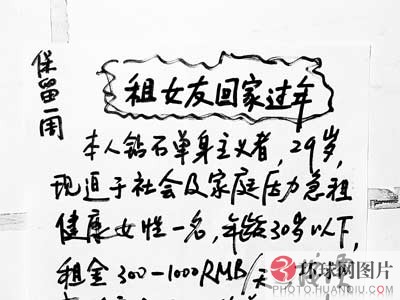 保留一周
租女友回家过年
本人钻石单身主义者,29岁,
现迫于社会及家庭压力急租
健康女性一名,年龄30岁以下,
租金300-1000RMB/天
环球网图片
PHOTO.HUANQIU.COM